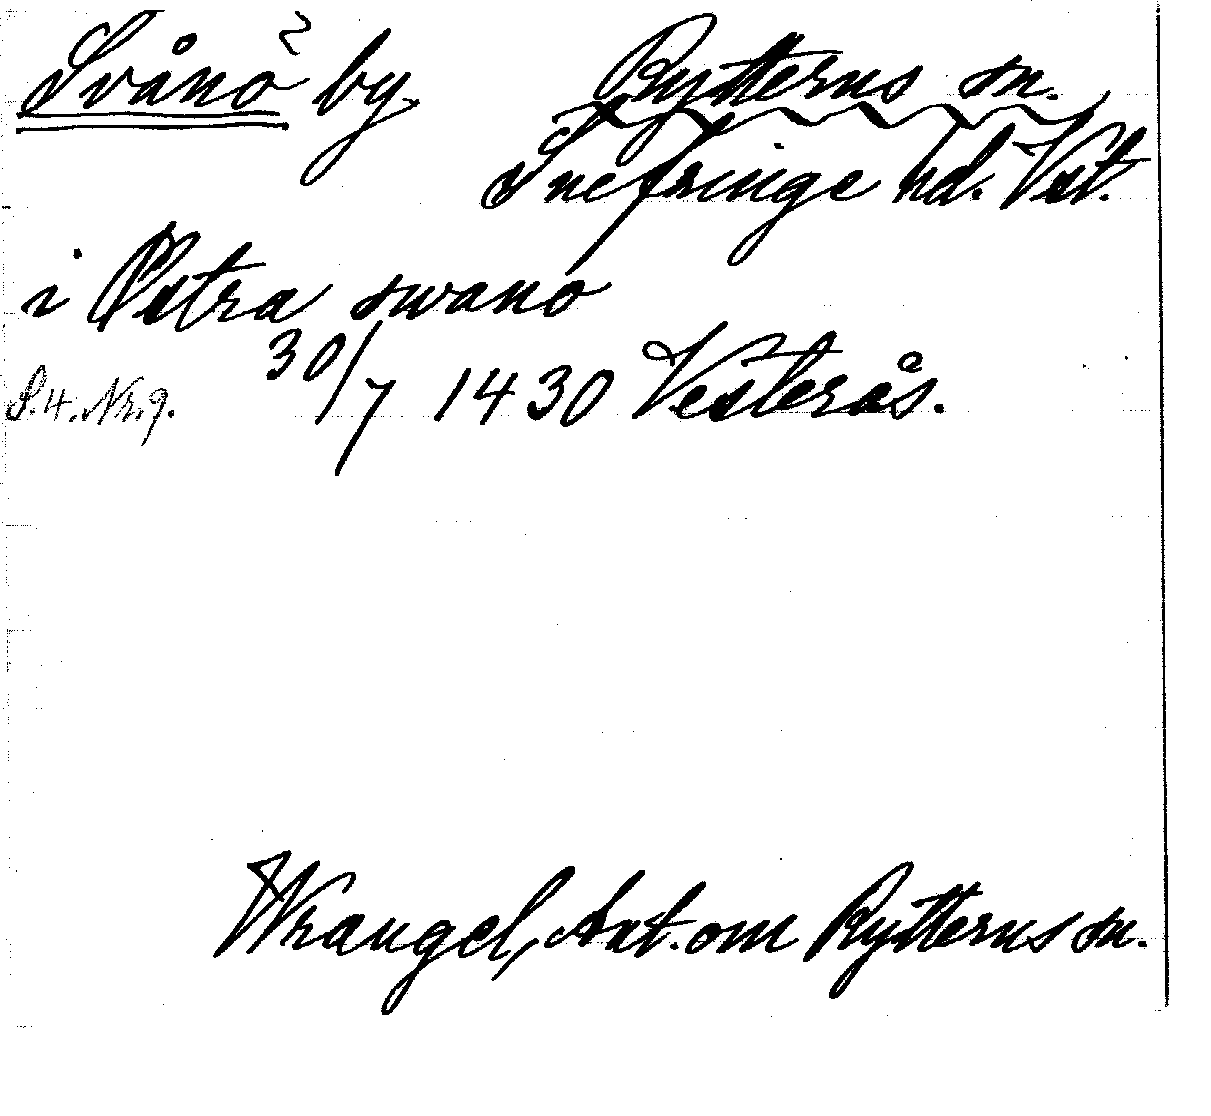 Svånö by. Rytterns sn.
Snefringe hd. Vstl.
i Østra swano
S. 4. Nr. 9. 30/7 1430 Vesterås.
Wrangel, Ant. om Rytterns sn.